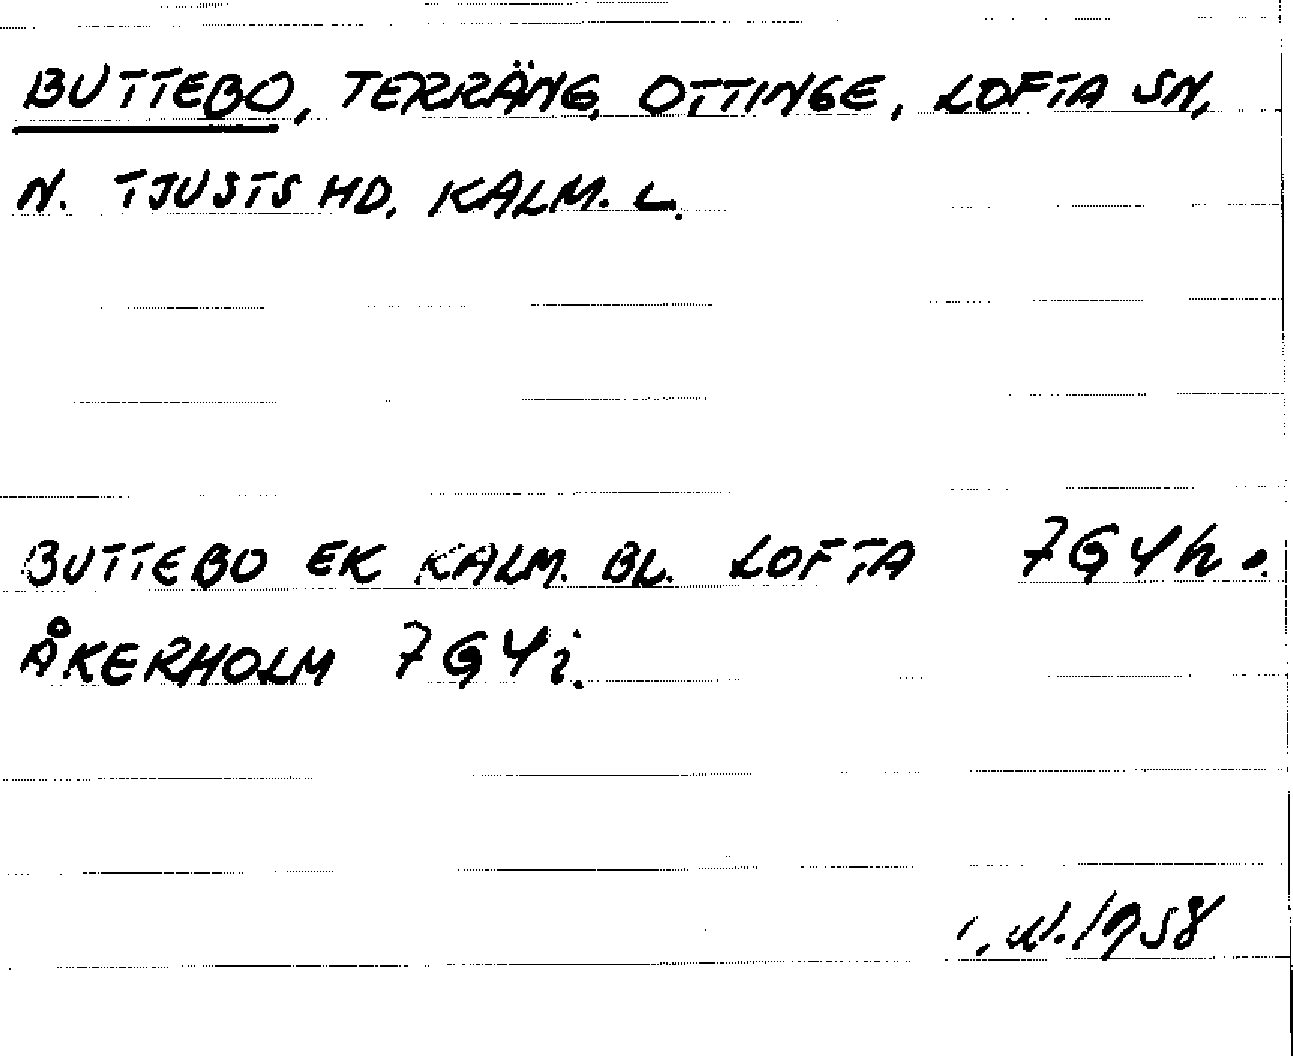 BUTTEBO, TERRÄNG, OTTINGE, LOFTA SN,
N. TJUSTS HD. KALM. L.
BUTTEBO EK KALM. BL. LOFTA 7G4h o.
ÅKERHOLM 7G4i.
1958